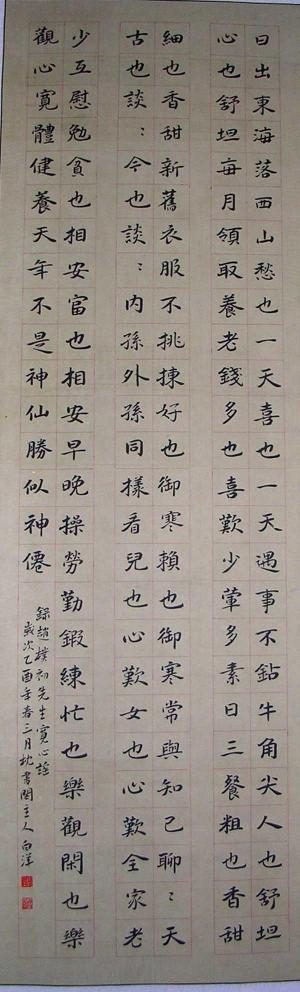 日出東海落西山愁也一天喜也一天遇事不鉆牛角尖人也舒坦
心也舒坦每月領取養老錢多也喜歡少葷多素日三餐粗也香甜
細也香甜新舊衣服不挑揀好也御寒賴也御寒常與知己聊〻天
古也談〻今也談〻內孫外孫同樣看兒也心歡女也心歡全家老
少互慰勉貧也相安富也相安早晚操勞勤鍛練忙也樂觀閑也樂
觀心寬體健養天年不是神仙勝似神僊
錄趙樸初先生寬心謠
歲次乙酉年春三月枕書閣主人向洋